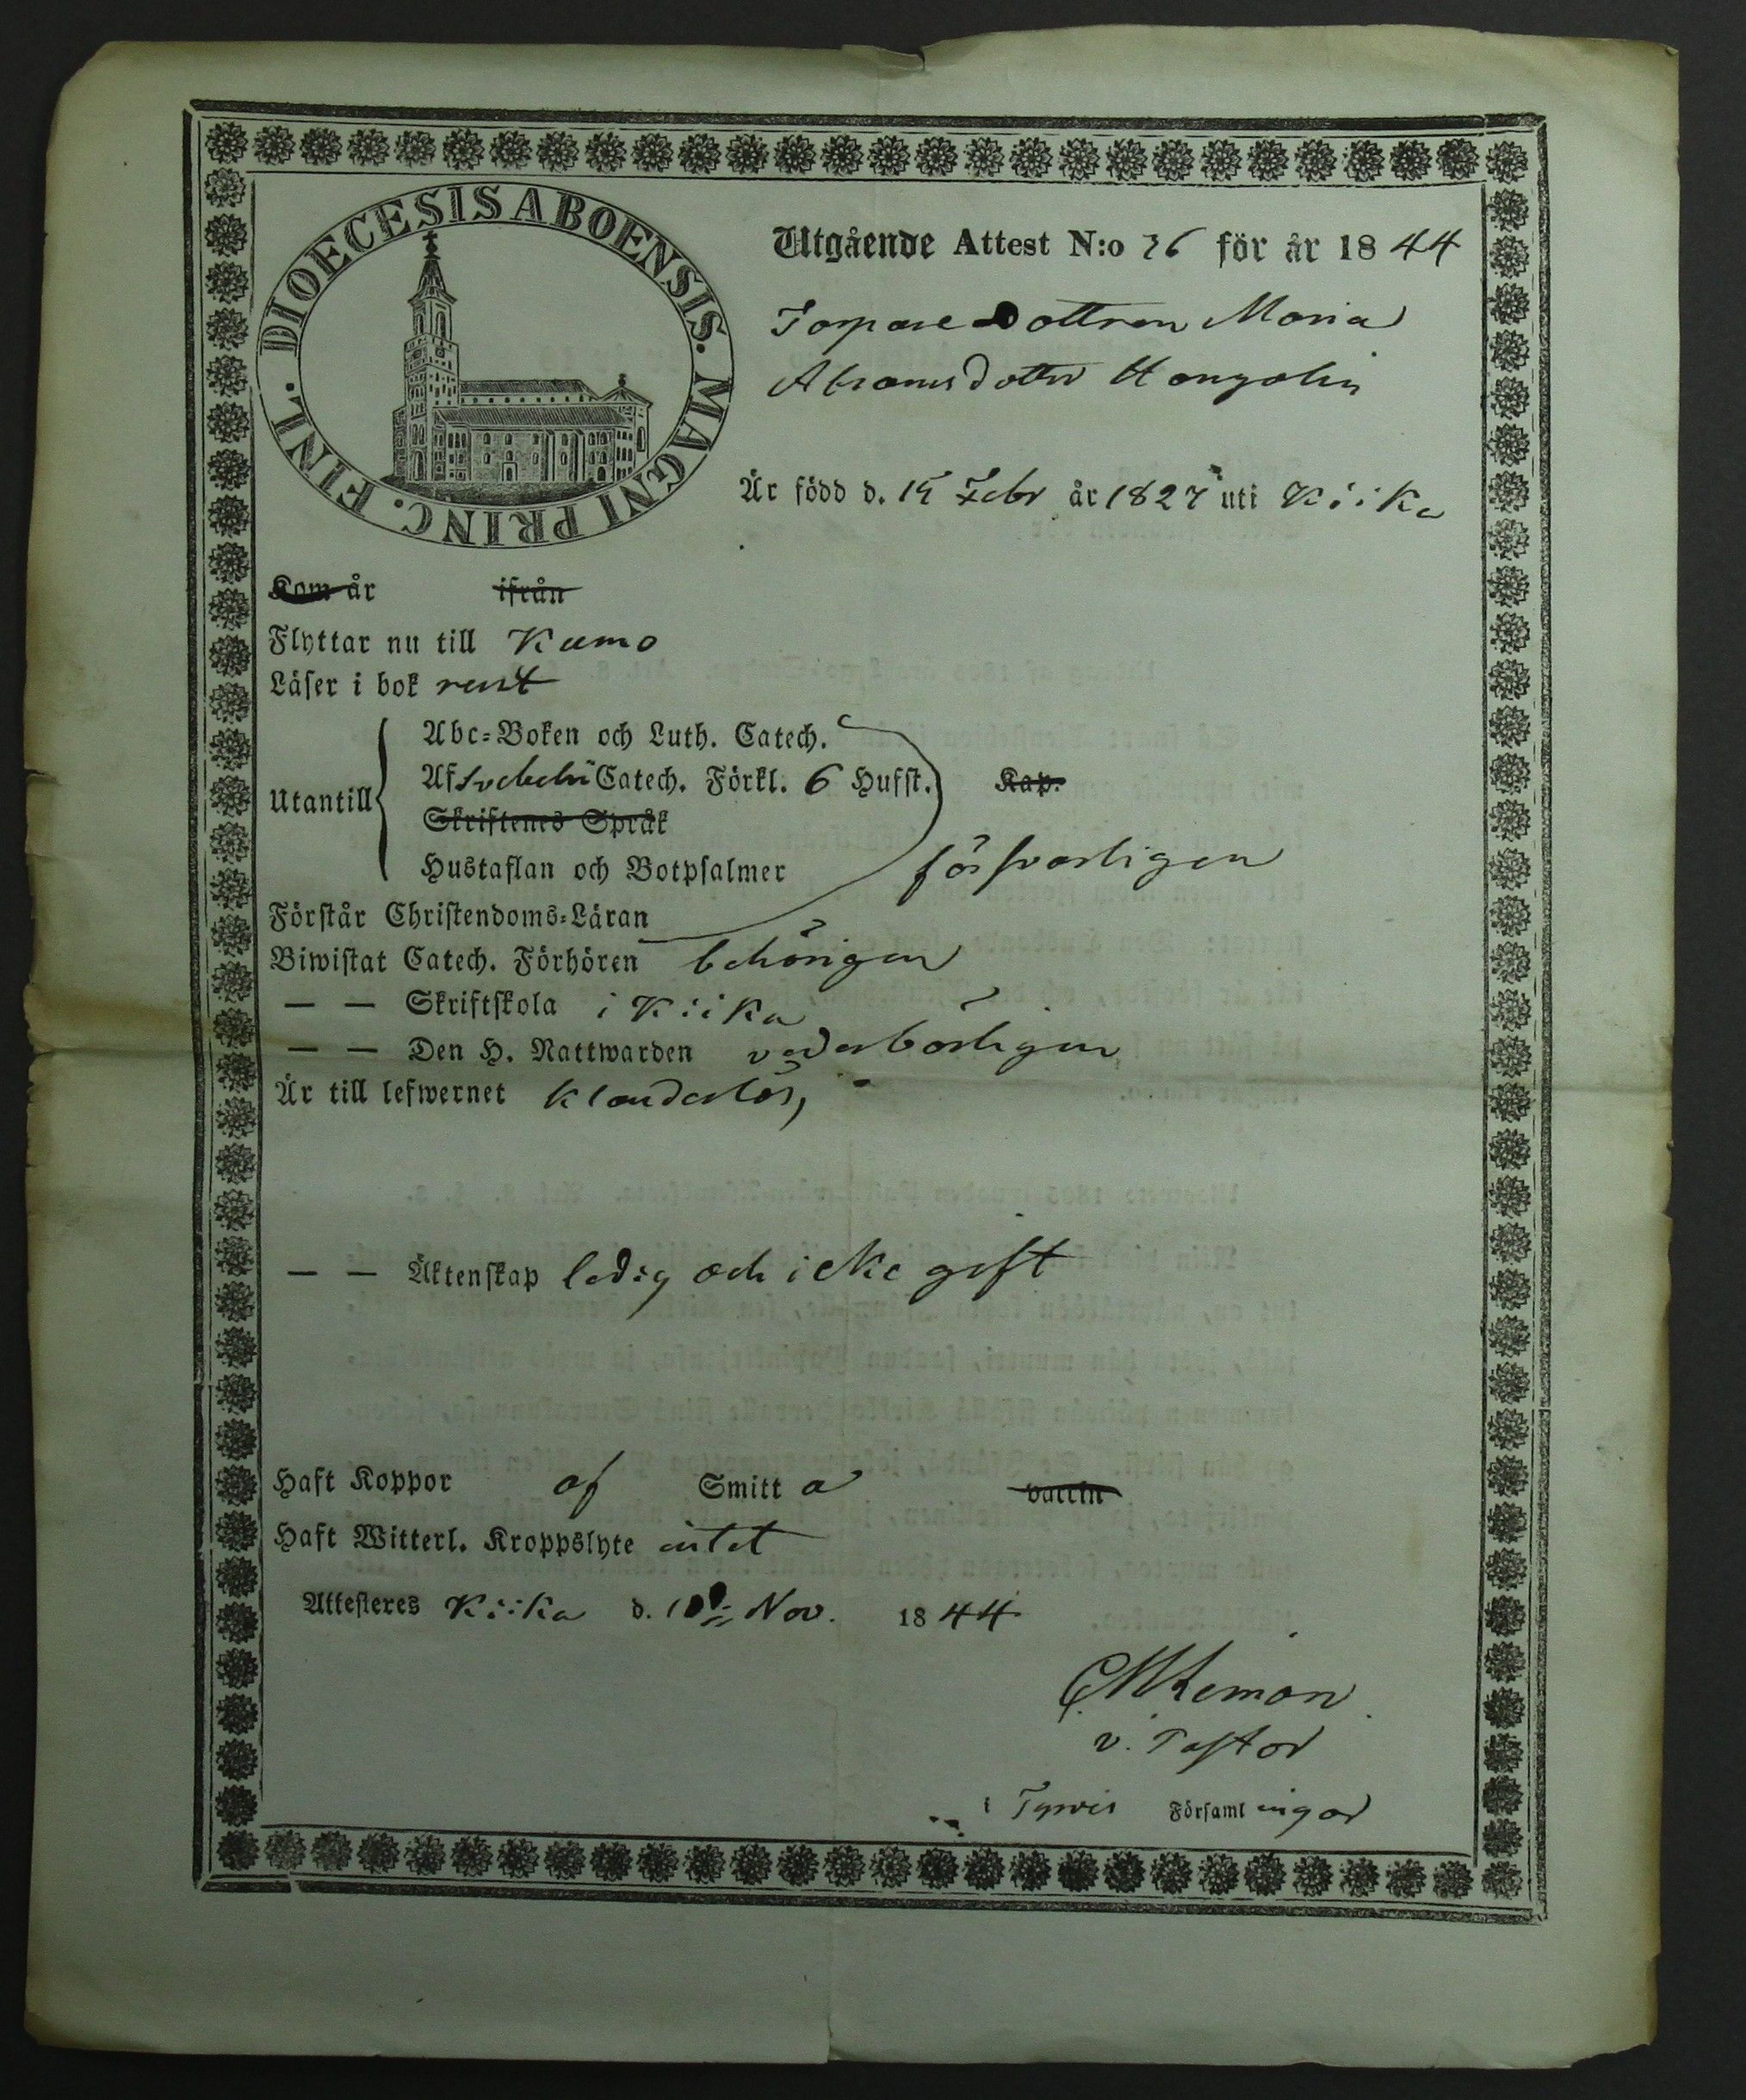 DIOECESIS ABOENSIS. MAGNI PRINC. FINL.
Utgående Attest N:o 26 för år 1844
Torpare Dottren Maria
Abramsdotter
Är född d. 15 Febr år 1827 uti Kiika
Kom år ifrån
Flyttar nu till Kumo
Läser i bok rent
Abc-Boken och Luth. Catech.
Af Svebelii Catech. Förkl. 6 Hufst. Kap.
Utantill
Skriftenes Språk
Hustaflan och Botpsalmer försvarligen
Förstår Christendoms-Läran
Biwistat Catech. Förhören behörigen
— — Skriftskola i Kiika
— — Den H. Nattwarden vederbörligen
Är till lefwernet klanderlös,
— — Äktenskap ledig och icke gift
Haft Koppor af Smitta vaccin
Haft Witterl. Kroppslyte intet
Attesteres Kiika d. Nov. 1844
v. Pastor
i Tyrvis Församlingar